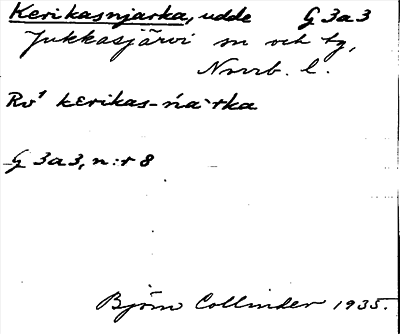 Kerikasnjarka, udde G 3a3
Jukkasjärvi sn och tg,
Norrb. l.
Rv¹ kerikas-ńàrka
G 3a3, n:r 8
Björn Collinder 1935.